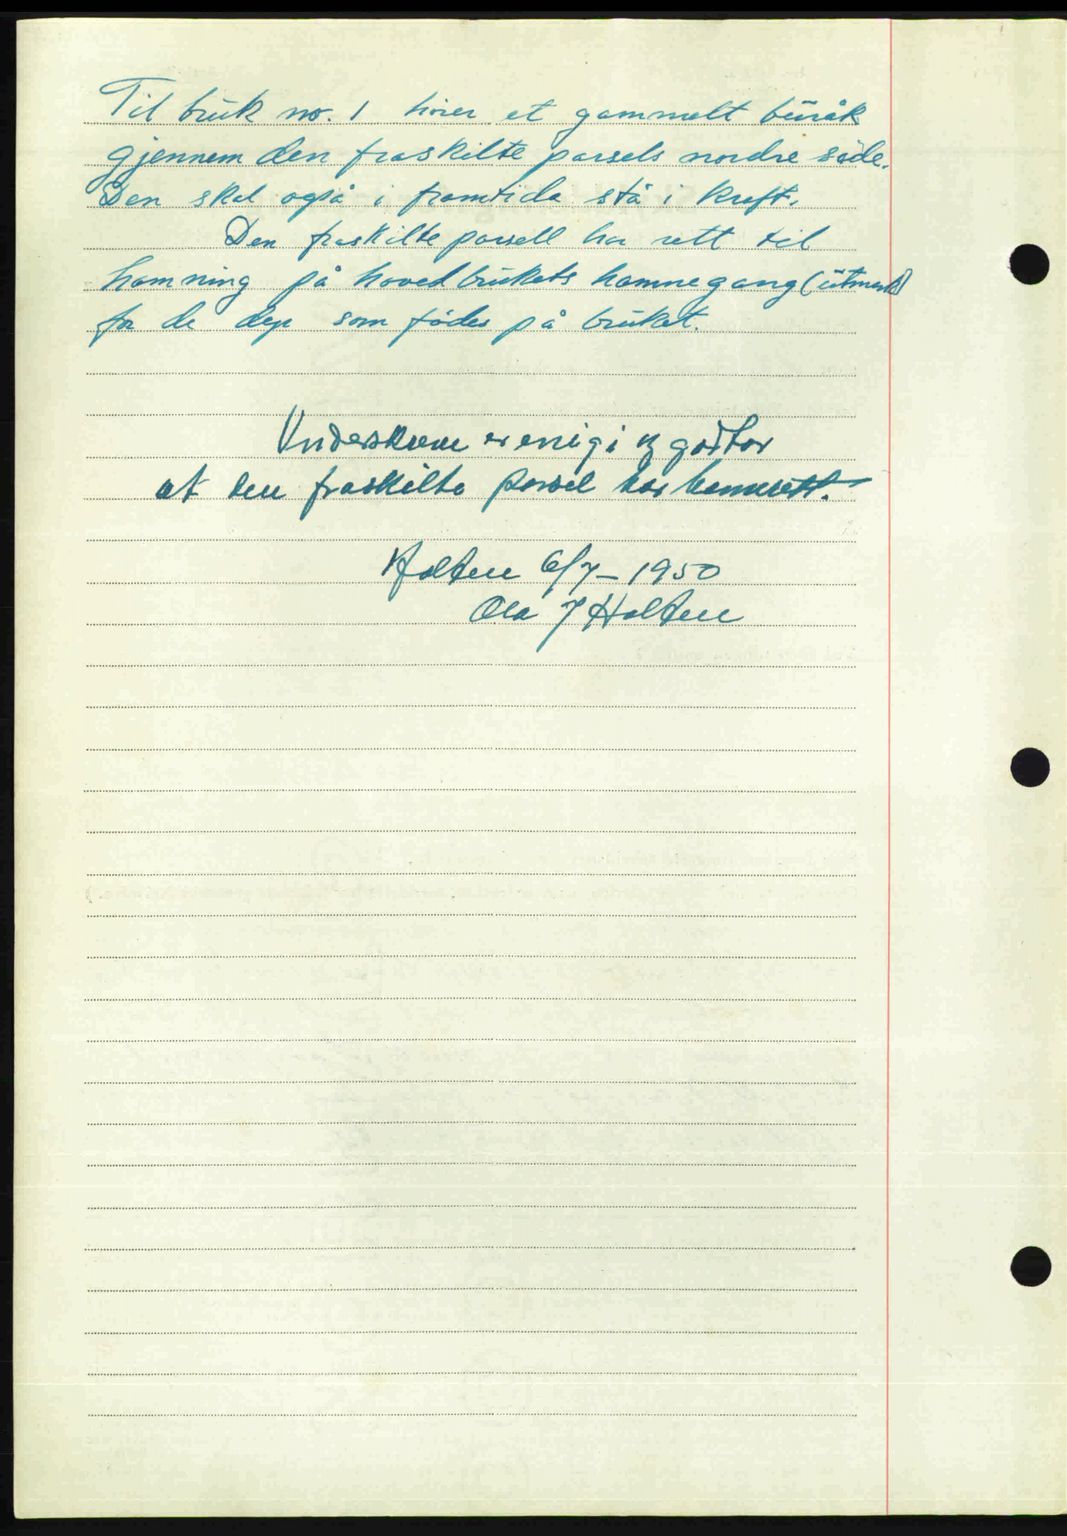 Til bruk no. 1 hører et gammelt buråk
gjennem den fraskilte parsels nordre side.
Den skal også i framtida stå i kraft.
Den fraskilte parsell har rett til
hamning på hovedbrukets hamnegang (utmark)
for de dyr som födes på bruket.
Underskrevne er enig i og godtar
at den fraskilte parsel har hamnrett.
Holten 6/7 - 1950
Ola J Holten